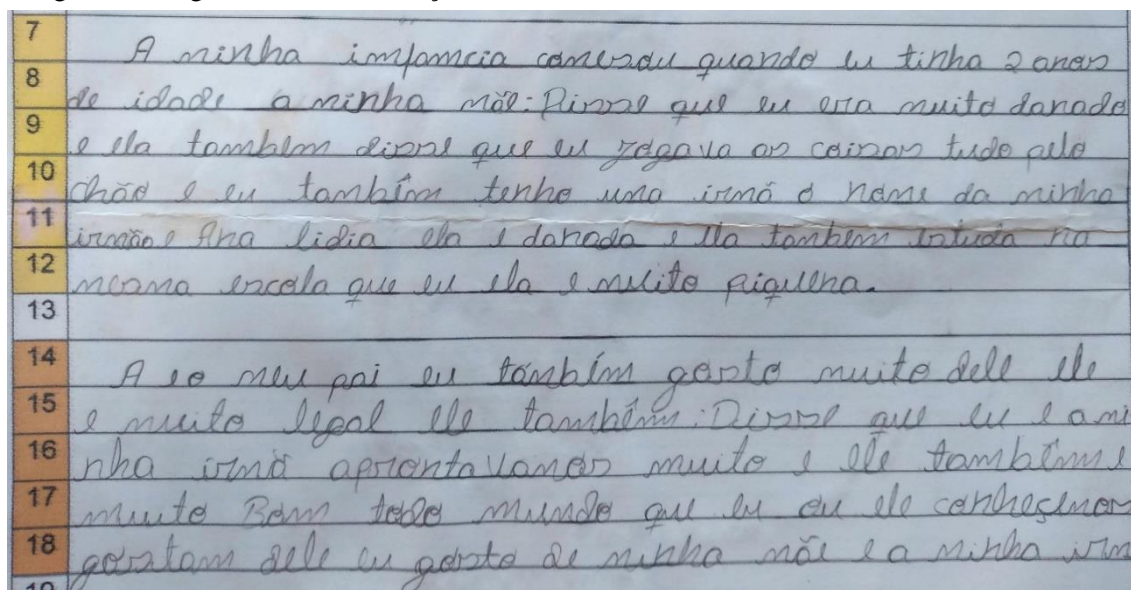 7 A minha imfamcia comesou quando eu tinha 2 anos
8 de idade a minha mãe: Disse que eu era muito danado
9 e ela tambem disse que eu jogava as coisas tudo pelo
10 chão e eu tambím tenho uma irmã o nome da minha
11 irmãn e Ana lidia ela e danada e ela tambem estuda na
12 mesma escola que eu ela e muito piquena.
13
14 A e o meu pai eu também gosto muito dele ele
15 e muito legal ele também: Disse que eu e a mi
16 nha irmã aprontavamos muito e ele também e
17 muito Bom todo mundo que eu ou ele conhesemos
18 gostam dele eu gosto de minha mãe e a minha irm